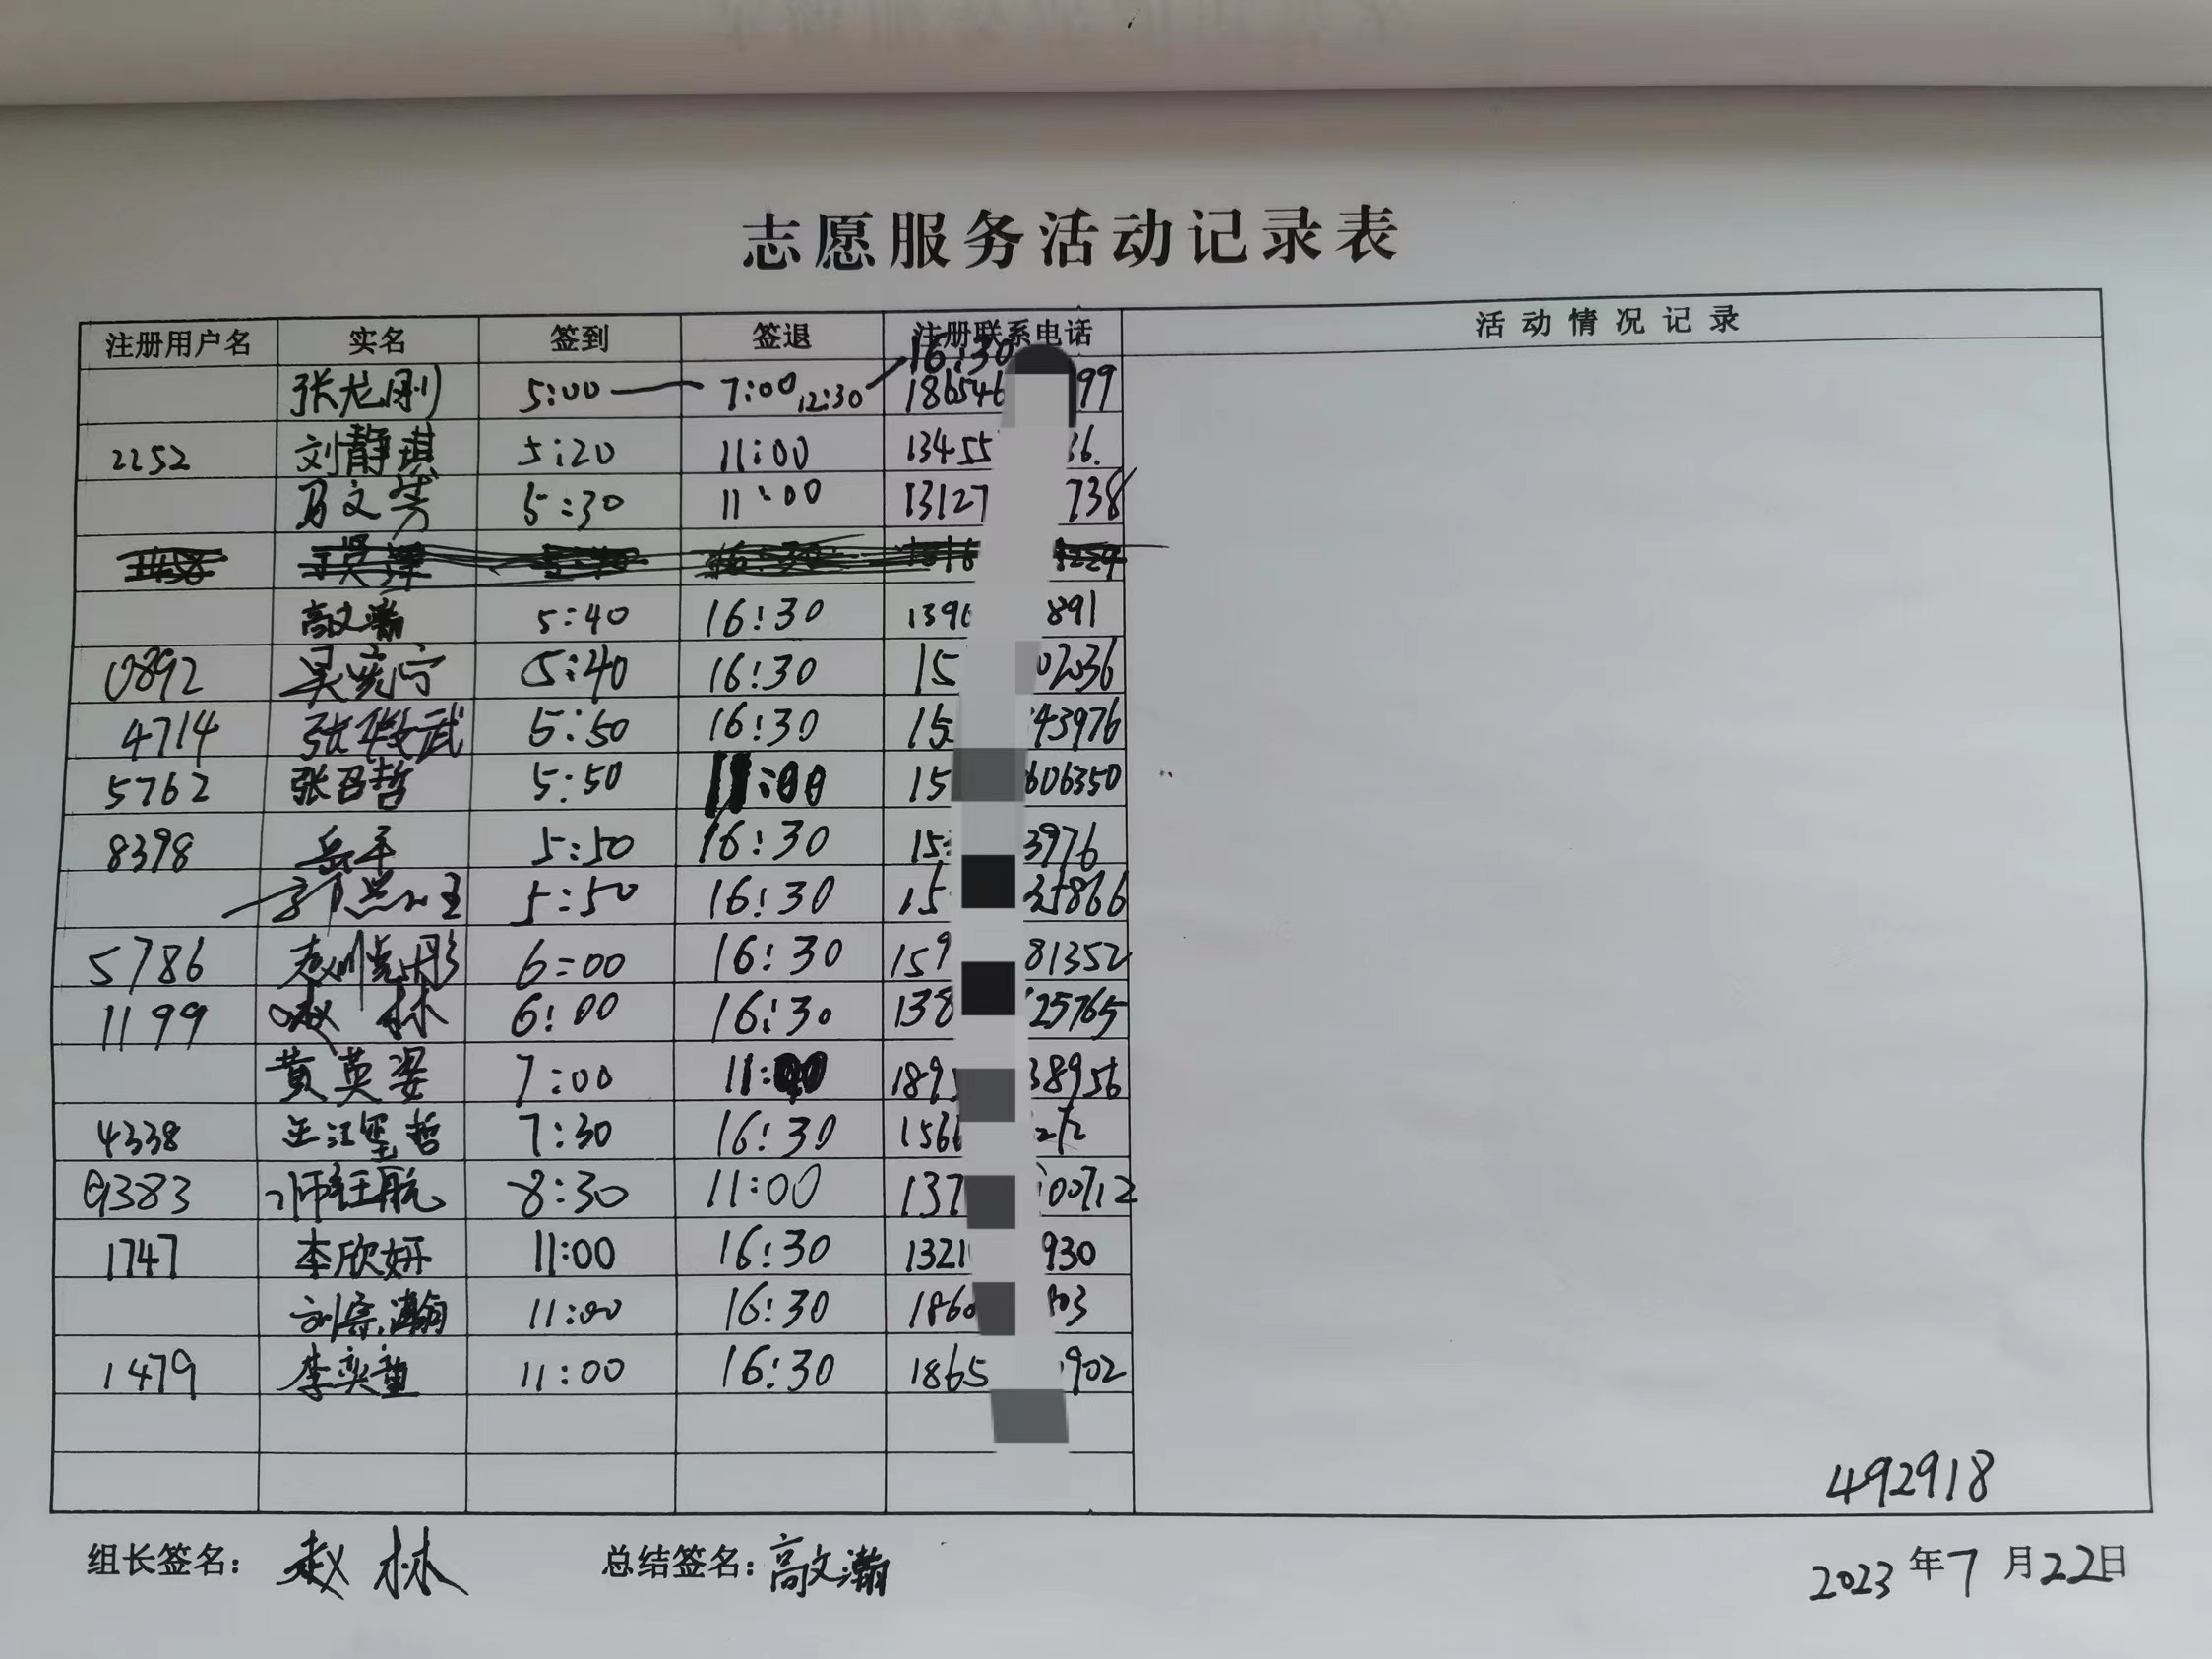 志愿服务活动记录表
注册用户名 实名 签到 签退 注册联系电话 活动情况记录
16:30
张龙刚 5:00 7:00 12:30 186546 99
2252 刘静琪 5:20 11:00 13455 36.
文芳 5:30 11:00 13127 738
高文瀚 5:40 16:30 139 891
0892 吴宪宁 5:40 16:30 15 02036
4714 张俊武 5:50 16:30 15 43976
5762 张召哲 5:50 11:00 15 606350
8398 岳平 5:50 16:30 15 3976
5:50 16:30 15 35866
5786 赵悦彤 6:00 16:30 159 81352
1199 赵林 6:00 16:30 138 25765
黄英姿 7:00 11:00 189 38956
4338 王江坚哲 7:30 16:30 156 212
9383 师钰航 8:30 11:00 137 00712
1747 李欣妍 11:00 16:30 1321 930
刘宗瀚 11:00 16:30 1860 03
1479 李奕萱 11:00 16:30 1865 902
492918
组长签名: 赵林 总结签名: 高文瀚 2023年7月22日